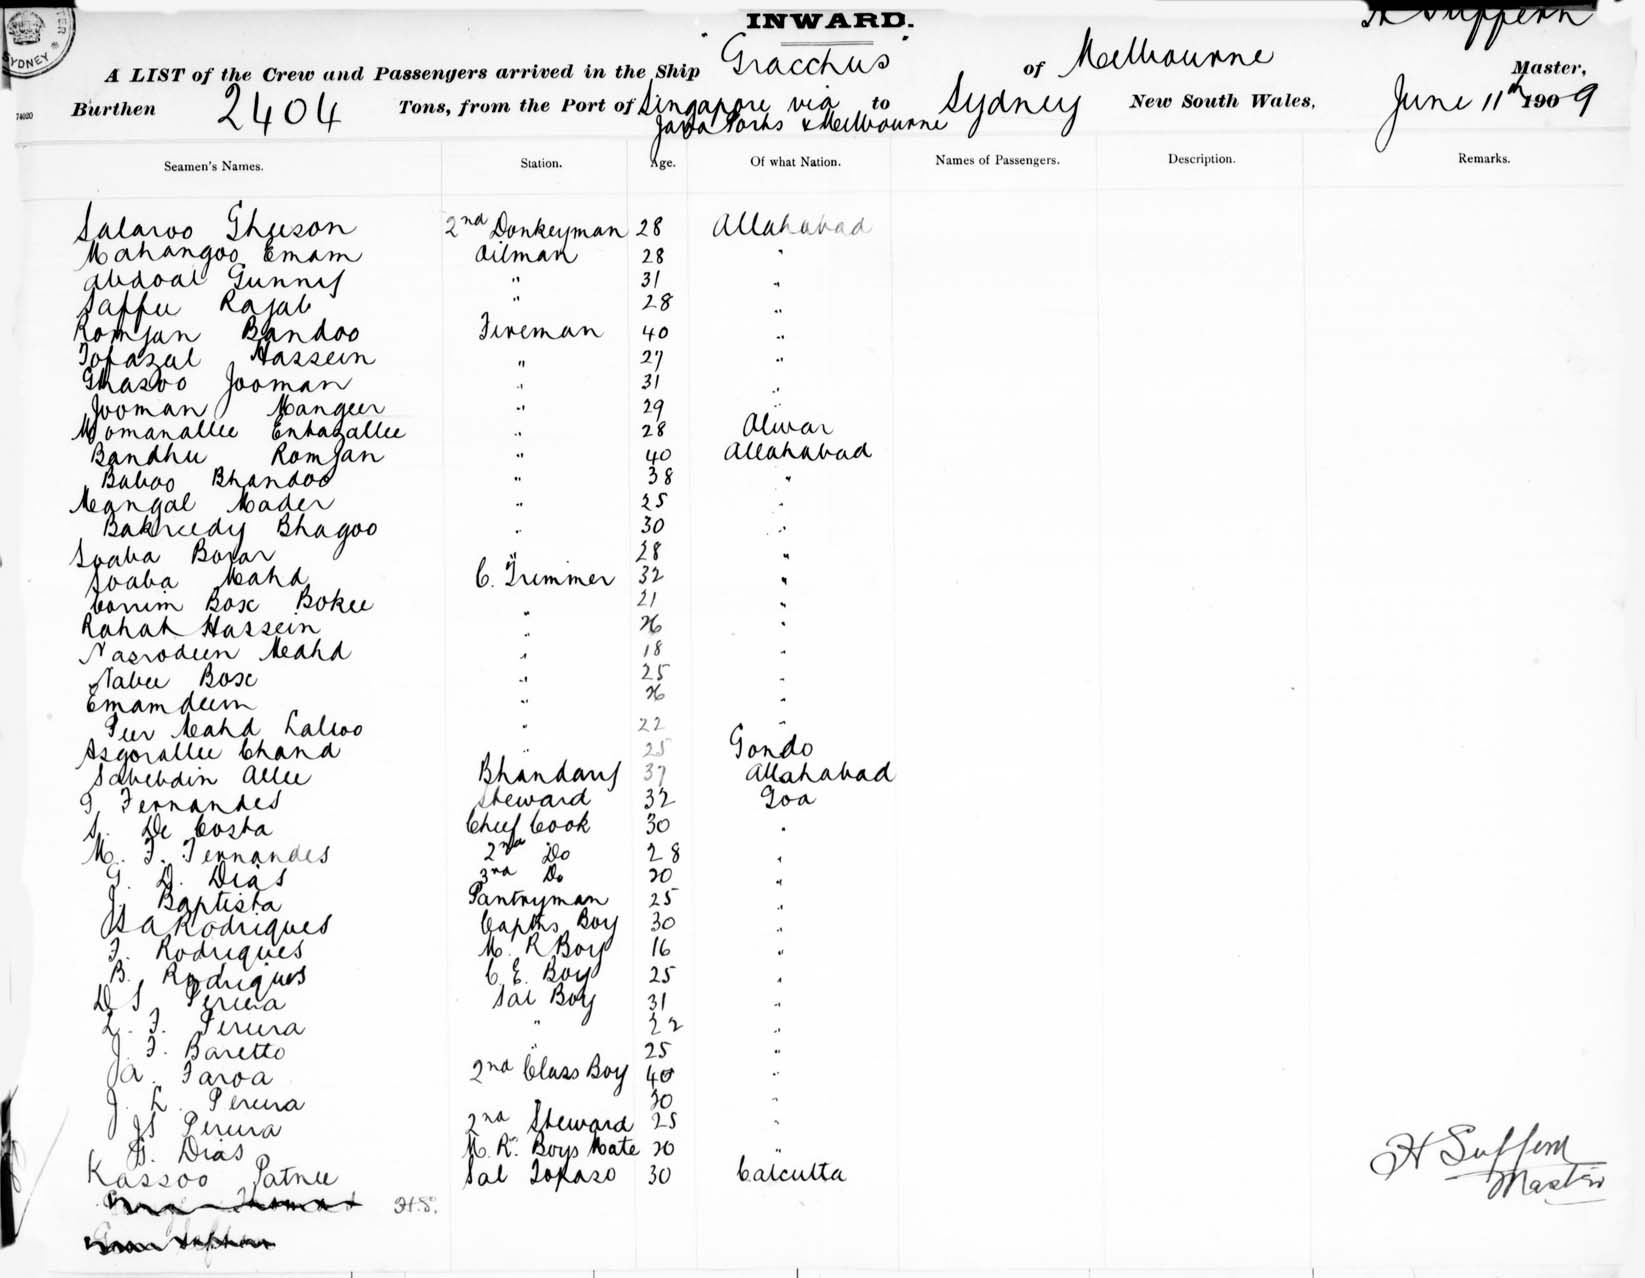 SYDNEY
INWARD.
H Suffern
A LIST of the Crew and Passengers arrived in the Ship "Gracchus" of Melbourne Master,
Burthen 2404 Tons, from the Port of Singapore via to Sydney New South Wales, June 11th 1909
Java Ports & Melbourne
74020
Seamen's Names. Station. Age. Of what Nation. Names of Passengers. Description. Remarks.
Salaroo Gheeson 2nd Donkeyman 28 Allahabad
Mahangoo Emam Oilman 28 "
Abdoal Gunny " 31 "
Saffee Rajab " 28 "
Romjan Bandoo Fireman 40 "
Tofazul Hassein " 27 "
Ghasoo Jooman " 31 "
Jooman Mangeer " 29 "
Momanallee Entazallee " 28 Alwar
Bandhu Romjan " 40 Allahabad
Baboo Bhandoo " 38 "
Mangal Mader " 25 "
Bakreedy Bhagoo " 30 "
Soaba Borar " 28 "
Soaba Mahd C. Trimmer 32 "
Corrim Box Bokee " 21 "
Rahah Hassein " 26 "
Nasrodeen Mahd " 18 "
Nabee Box " 25 "
Emamdeen " 26 "
Peer Mahd Lalloo " 22 "
Asgorallee Chand " 25 Gondo
Sabebdin Allee Bhandary 37 Allahabad
F Fernandes Steward 32 Goa
S. De Costa Chief Cook 30 "
M. F. Fernandes 2nd Do 28 "
G. D. Dias 3rd Do 20 "
J. Baptista Pantryman 25 "
Rodriques Captns Boy 30 "
F. Rodriques M. R Boy 16 "
B. Rodriques C. E. Boy 25 "
D S Pereira Sal Boy 31 "
L. F. Pereira " 22 "
J. F. Baretto " 25 "
A. Faroa 2nd Class Boy 40 "
J. L. Pereira 30 "
JS Pereira 2nd Steward 25 "
G. Dias M. R. Boys Mate 20 "
Kassoo Patnee Sal Topass 30 Calcutta
H Suffern
Master
H.S.